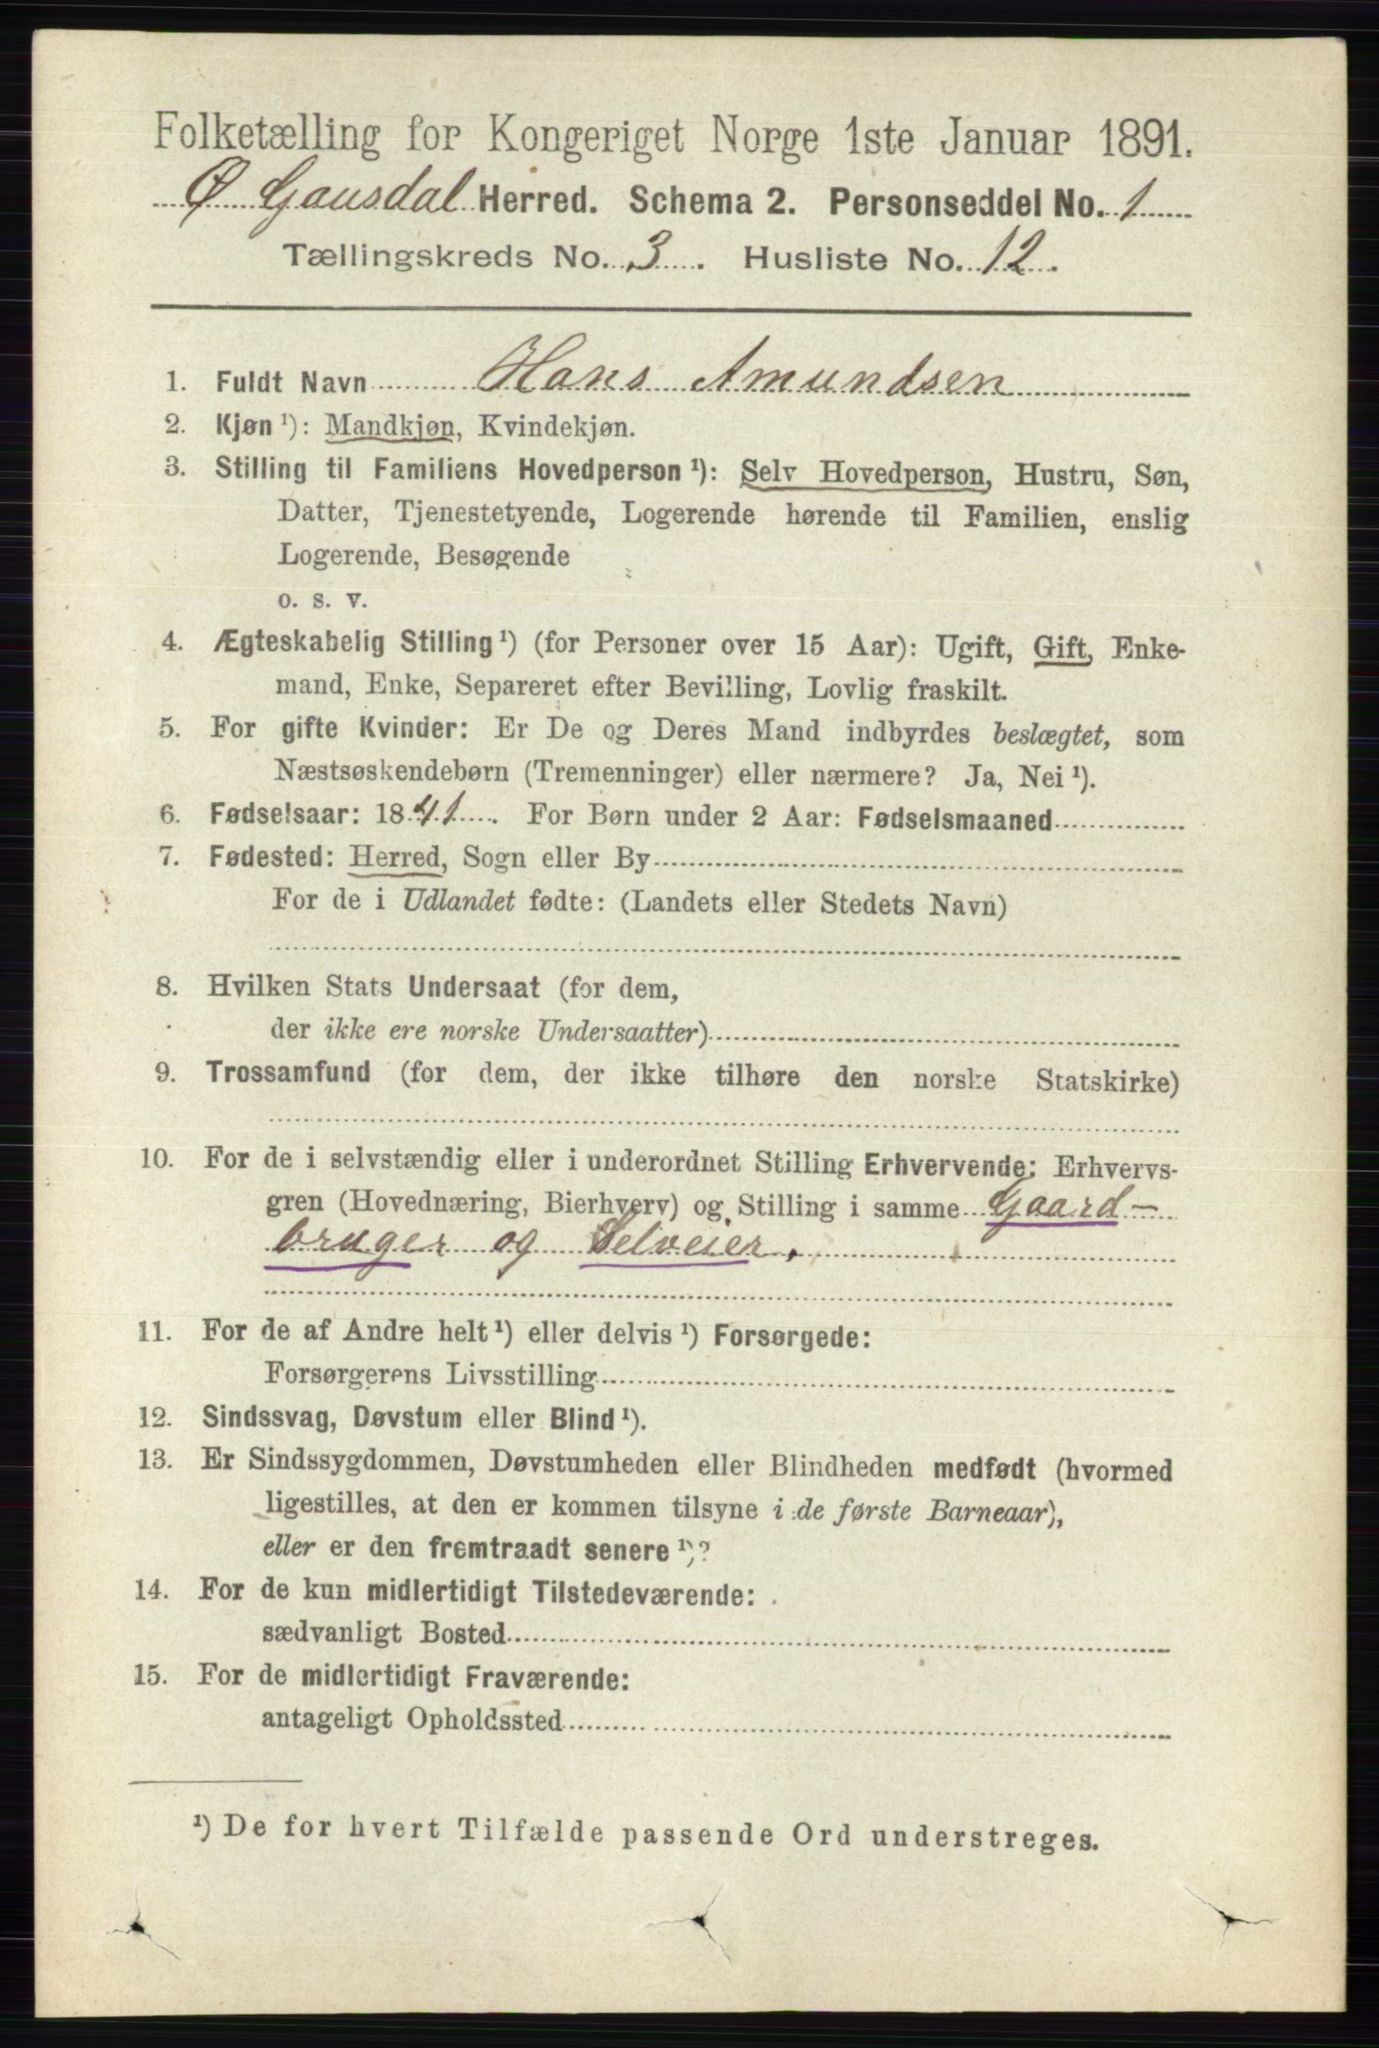 Folketælling for Kongeriget Norge 1ste Januar 1891.
Ø Gausdal Herred. Schema 2. Personseddel No. 1
Tællingskreds No. 3. Husliste No. 12.
1. Fuldt Navn Hans Amundsen
2. Kjøn ¹): Mandkjøn, Kvindekjøn.
3. Stilling til Familiens Hovedperson ¹): Selv Hovedperson, Hustru, Søn,
Datter, Tjenestetyende, Logerende hørende til Familien, enslig
Logerende, Besøgende
o. s. v.
4. Ægteskabelig Stilling ¹) (for Personer over 15 Aar): Ugift, Gift, Enke-
mand, Enke, Separeret efter Bevilling, Lovlig fraskilt.
5. For gifte Kvinder: Er De og Deres Mand indbyrdes beslægtet, som
Næstsøskendebørn (Tremenninger) eller nærmere? Ja, Nei ¹).
6. Fødselsaar: 1841. For Børn under 2 Aar: Fødselsmaaned
7. Fødested: Herred, Sogn eller By
For de i Udlandet fødte: (Landets eller Stedets Navn)
8. Hvilken Stats Undersaat (for dem,
der ikke ere norske Undersaatter)
9. Trossamfund (for dem, der ikke tilhøre den norske Statskirke)
10. For de i selvstændig eller i underordnet Stilling Erhvervende: Erhvervs-
gren (Hovednæring, Bierhverv) og Stilling i samme Gaard-
bruger og Selveier.
11. For de af Andre helt ¹) eller delvis ¹) Forsørgede:
Forsørgerens Livsstilling
12. Sindssvag, Døvstum eller Blind ¹).
13. Er Sindssygdommen, Døvstumheden eller Blindheden medfødt (hvormed
ligestilles, at den er kommen tilsyne i de første Barneaar),
eller er den fremtraadt senere ¹)?
14. For de kun midlertidigt Tilstedeværende:
sædvanligt Bosted
15. For de midlertidigt Fraværende:
antageligt Opholdssted
¹) De for hvert Tilfælde passende Ord understreges.